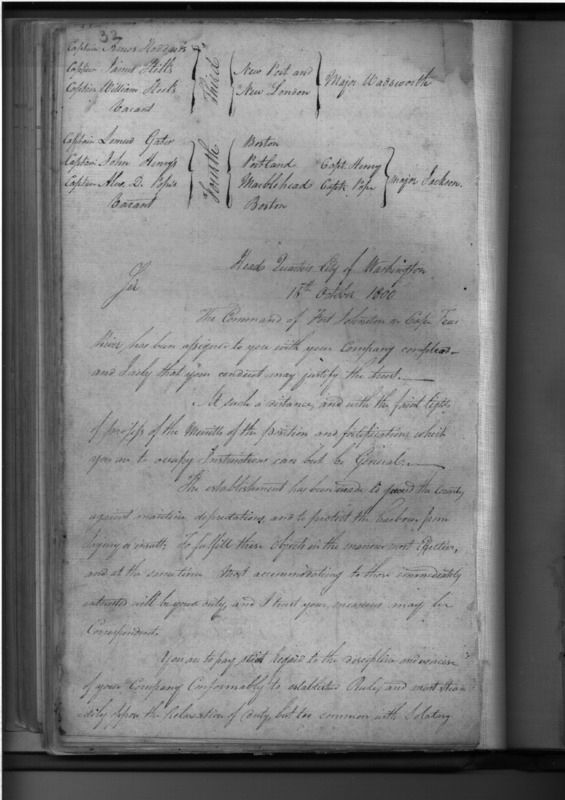 32
Captain Amos Stoddard
Captain James Stille
Captain William Steele
Vacant
Third
New Port and
New London
Major Wadsworth
Captain Lemuel Gates
Captain John Henry
Captain Alex. D. Pope
Vacant
Fourth
Boston
Portland
Marblehead
Boston
Capt. Henry
Capt. Pope
Major Jackson.
Head Quarters City of Washington
15th October 1800
Sir
The Command of Fort Johnston on Cape Fear
River, has been assigned to you with your Company
and I rely that your conduct may justify the trust.
At such a distance, and with the faint lights
I possess of the Mouth of the position and fortifications which
you are to occupy Instructions can but be General.
The establishment has been made to guard the Country
against maritime depredations, and to protect the harbour from
injury or insult; To fulfill these objects in the manner most Effective,
and at the same time most accommodating to those immediately
interested will be your duty, and I trust your measures may be
Correspondent.
You are to pay strict regard to the discipline and
of your Company Conformably to established Rules, and must
oppose the Relaxation of duty, but too common with Solitary